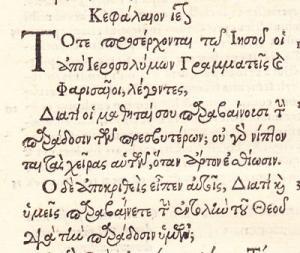 Κεφάλαιον ιε
ΤΟτε προσέρχονται τῷ Ιησοῦ οἱ
ἀπὸ Ιεροσολύμων Γραμματεῖς καὶ
Φαρισαῖοι, λέγοντες,
Διατί οἱ μαθηταί σου παραβαίνουσι τὴν
παράδοσιν τῶν πρεσβυτέρων; οὐ γὰρ νίπτον
ται τὰς χεῖρας αὐτῶν, ὅταν ἄρτον ἐσθίωσιν.
Ο δὲ ἀποκριθεὶς εἶπεν αὐτοῖς, Διατί καὶ
ὑμεῖς παραβαίνετε τὴν ἐντολὴν τοῦ Θεοῦ
διὰ τὴν παράδοσιν ὑμῶν;